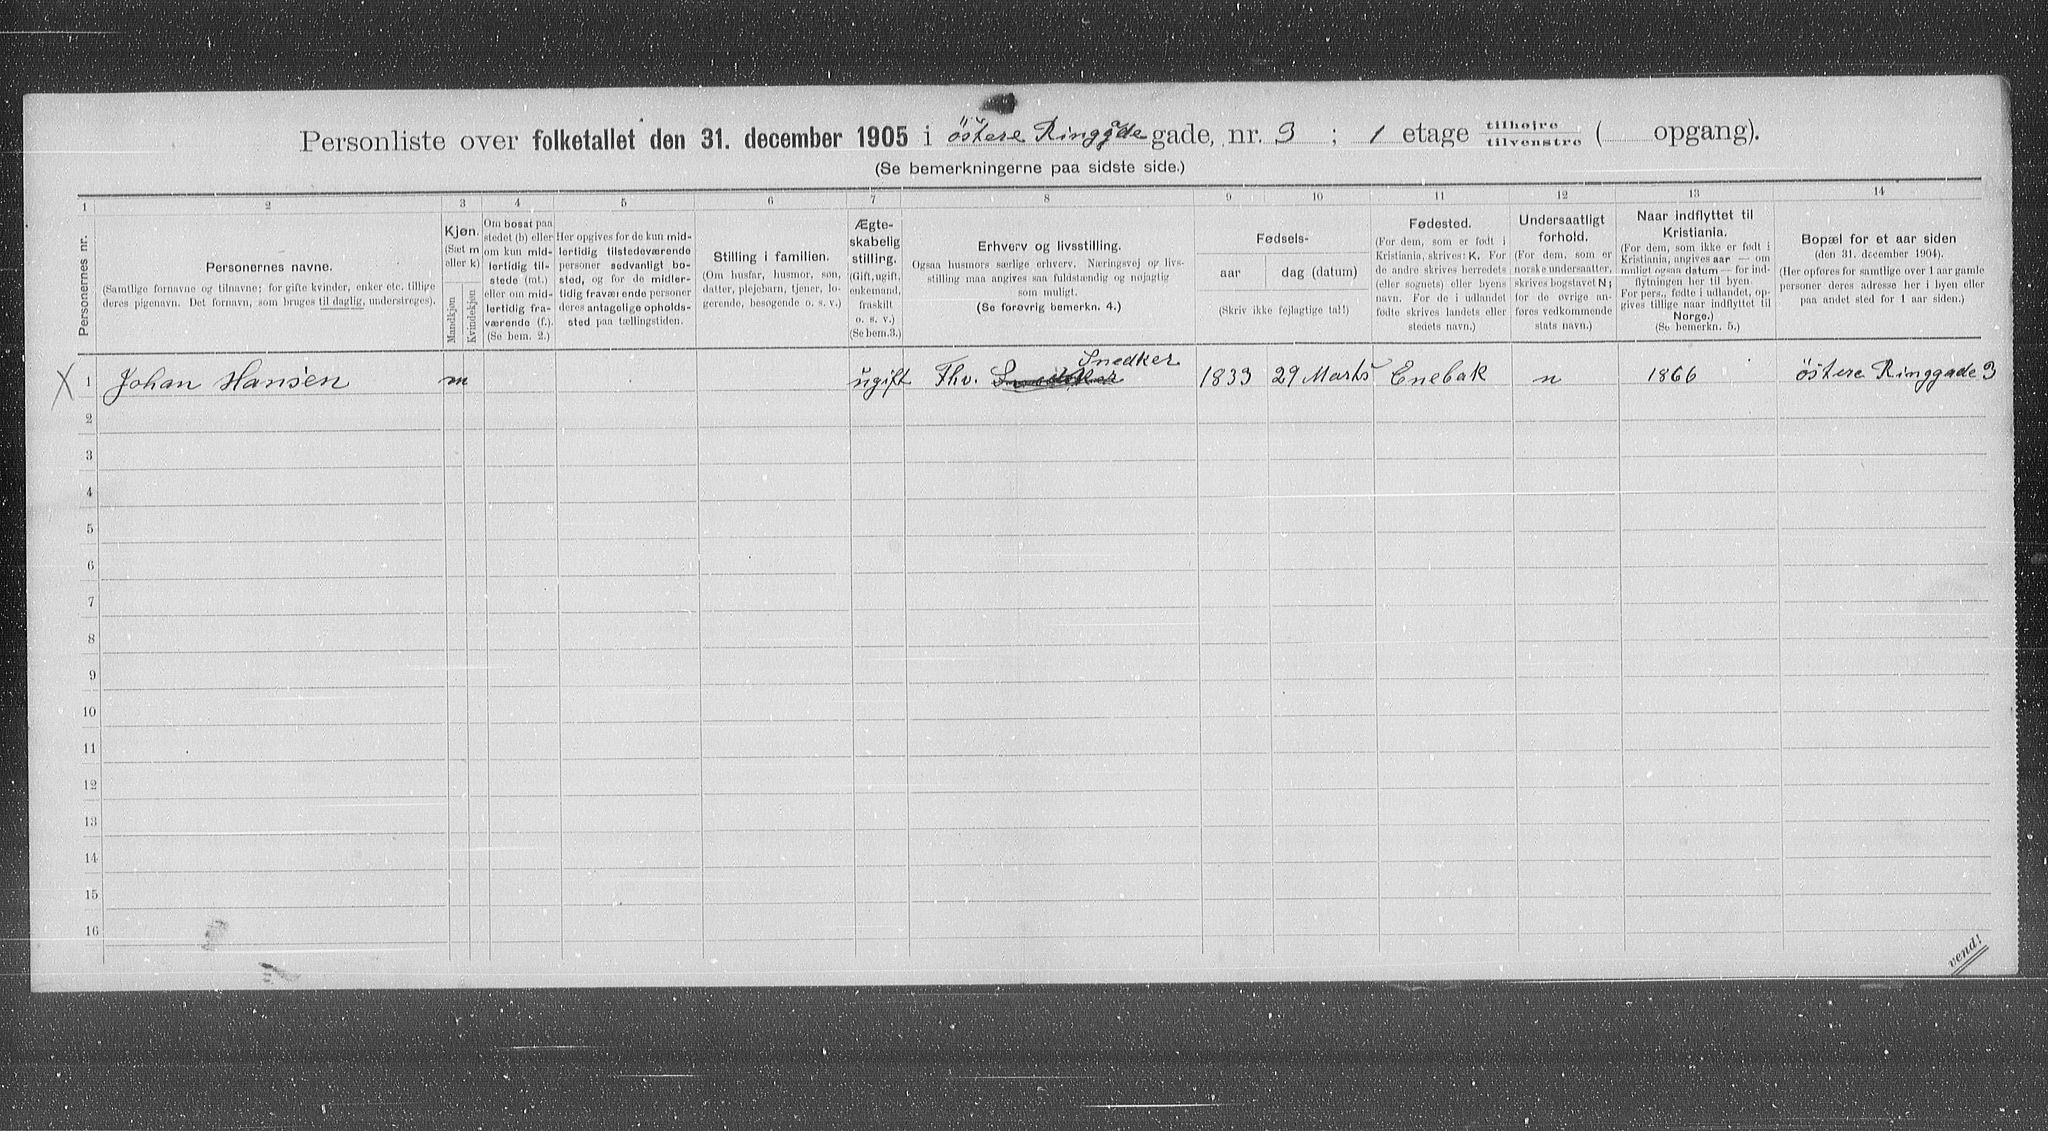 Personliste over folketallet den 31. december 1905 i östere Ringgade gade, nr. 3 ; 1 etage tilhøire tilvenstre ( opgang).
(Se bemerkningerne paa sidste side.)
1 2 3 4 5 6 7 8 9 10 11 12 13 14
Personernes nr.
Personernes navne.
(Samtlige fornavne og tilnavne; for gifte kvinder, enker etc. tillige
deres pigenavn. Det fornavn, som bruges til daglig, understreges).
Kjøn.
(Sæt m
eller k)
Mandkjøn
Kvindekjøn
Om bosat paa
stedet (b) eller
om kun mid-
lertidig til-
stede (mt.)
eller om mid-
lertidig fra-
værende (f.).
(Se bem. 2.)
Her opgives for de kun mid-
lertidig tilstedeværende
personer sedvanligt bo-
sted, og for de midler-
tidig fraværende personer
deres antagelige opholds-
sted paa tællingstiden.
Stilling i familien.
(Om husfar, husmor, søn,
datter, plejebarn, tjener, lo-
gerende, besøgende o. s. v.)
Ægte-
skabelig
stilling.
(Gift, ugift,
enkemand,
fraskilt
o. s. v.)
(Se bem.3.)
Erhverv og livsstilling.
Ogsaa husmors særlige erhverv. Næringsvej og livs-
stilling maa angives saa fuldstændig og nøjagtig
som muligt.
(Se forøvrig bemerkn. 4.)
Fødsels-
aar dag (datum)
(Skriv ikke fejlagtige tal!)
Fødested.
(For dem, som er født i
Kristiania, skrives: K. For
de andre skrives herredets
(eller sognets) eller byens
navn. For de i udlandet
fødte skrives landets eller
stedets navn.)
Undersaatligt
forhold.
(For dem, som er
norske undersaatter,
skrives bogstavet N;
for de øvrige an-
føres vedkommende
stats navn.)
Naar indflyttet til
Kristiania.
(For dem, som ikke er født i
Kristiania, angives aar — om
muligt ogsaa datum — for ind-
flytningen her til byen.
For pers., fødte i udlandet, op-
gives tillige naar indflyttet til
Norge.)
(Se bemerkn. 5.)
Bopæl for et aar siden
(den 31. december 1904).
(Her opføres for samtlige over 1 aar gamle
personer deres adresse her i byen eller
paa andet sted for 1 aar siden.)
Snedker
X 1 Johan Hansen m ugift Fhv. 1833 29 Marts Enebak n 1866 östere Ringgade 3
2
3
4
5
6
7
8
9
10
11
12
13
14
15
16
vend!